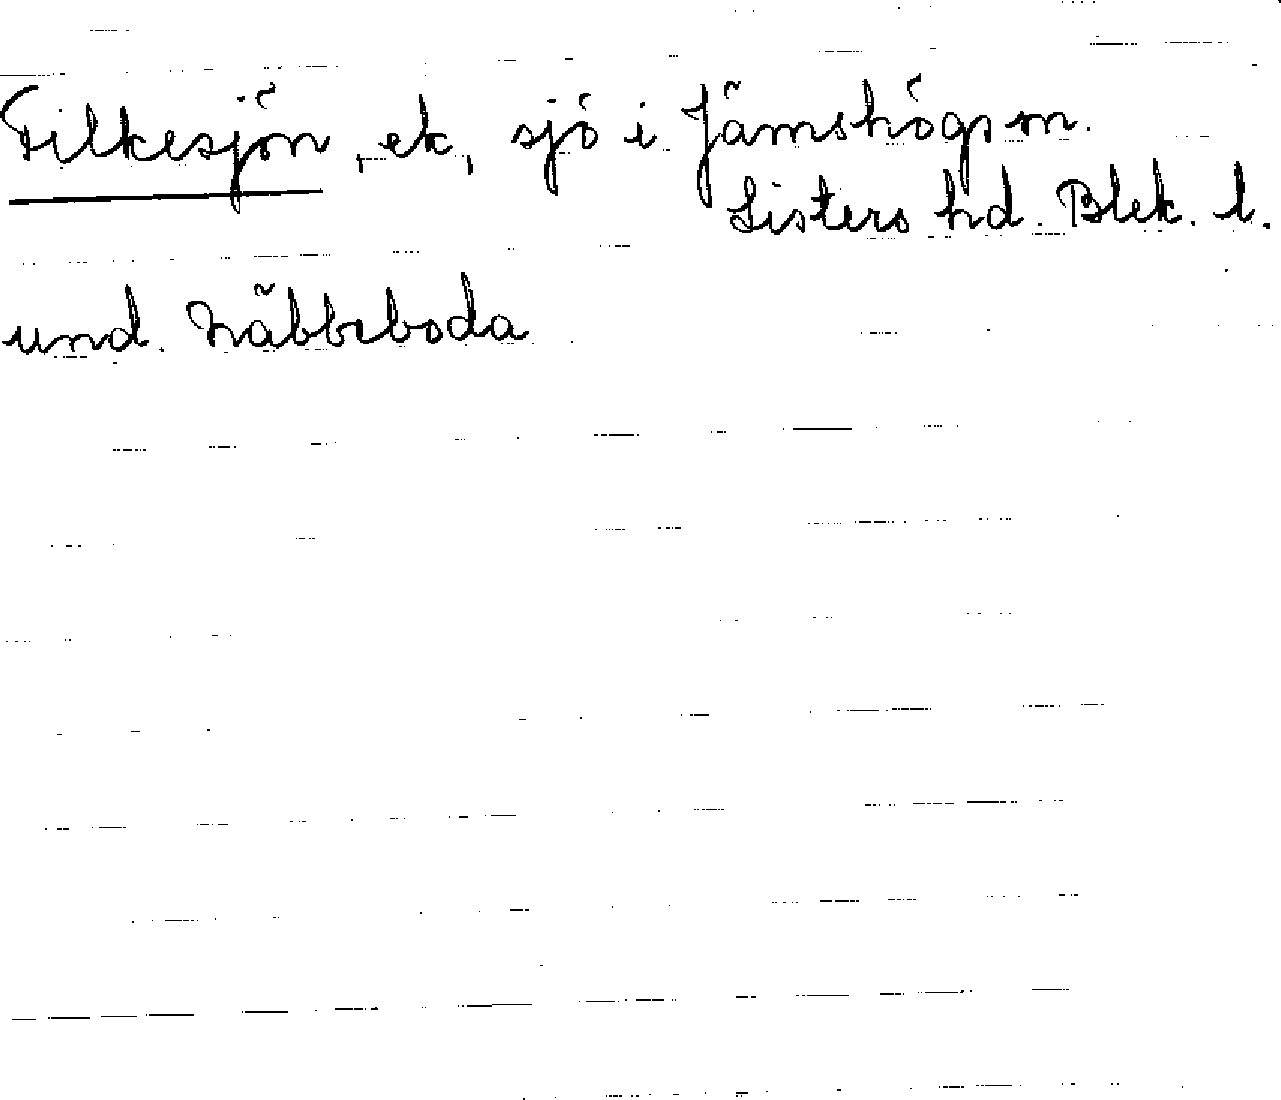 Filkesjön, ek, sjö i Jämshögs sn.
Listers hd. Blek. l.
und. Näbbeboda